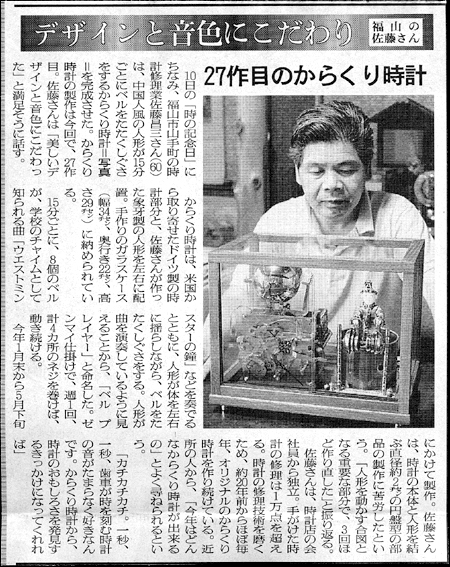 デザインと音色にこだわり
福山の
佐藤さん
27作目のからくり時計
10日の「時の記念日」に
ちなみ、福山市山手町の時
計修理業佐藤昌三さん(60)
は、中国人風の人形が15分
ごとにベルをたたくしぐさ
をするからくり時計＝写真
＝を完成させた。からくり
時計の製作は今回で、27作
目。佐藤さんは「美しいデ
ザインと音色にこだわっ
た」と満足そうに話す。
からくり時計は、米国か
ら取り寄せたドイツ製の時
計部分と、佐藤さんが作っ
た象牙製の人形を左右に配
置。手作りのガラスケース
（幅34㌢、奥行き22㌢、高
さ29㌢）に納められてい
る。
15分ごとに、8個のベル
が、学校のチャイムとして
知られる曲「ウエストミン
スターの鐘」などを奏でる
とともに、人形が体を左右
に揺らしながら、ベルをた
たくしぐさをする。人形が
曲を演奏しているように見
えることから、「ベル　プ
レイヤー」と命名した。ゼ
ンマイ仕掛けで、週1回、
計4カ所のネジを巻けば、
動き続ける。
今年1月末から5月下旬
にかけて製作。佐藤さん
は、時計の本体と人形を結
ぶ直径約2㌢の円盤型の部
品の製作に苦労したとい
う。「人形を動かす図と
なる重要な部分で、3回ほ
ど作り直した」と振り返る。
佐藤さんは、時計店の会
社員から独立。手がけた時
計の修理は1万点を超え
る。時計の修理技術を磨く
ため、約20年前からほぼ毎
年、オリジナルのからくり
時計を作り続けている。近
所の人から、「今年はどん
なからくり時計が出来る
の」とよく尋ねられるとい
う。
「カチカチカチ。一秒、
一秒、歯車が時を刻む時計
の音がたまらなく好きなん
です。からくり時計から、
時計のおもしろさを発見す
るきっかけになってくれれ
ば」